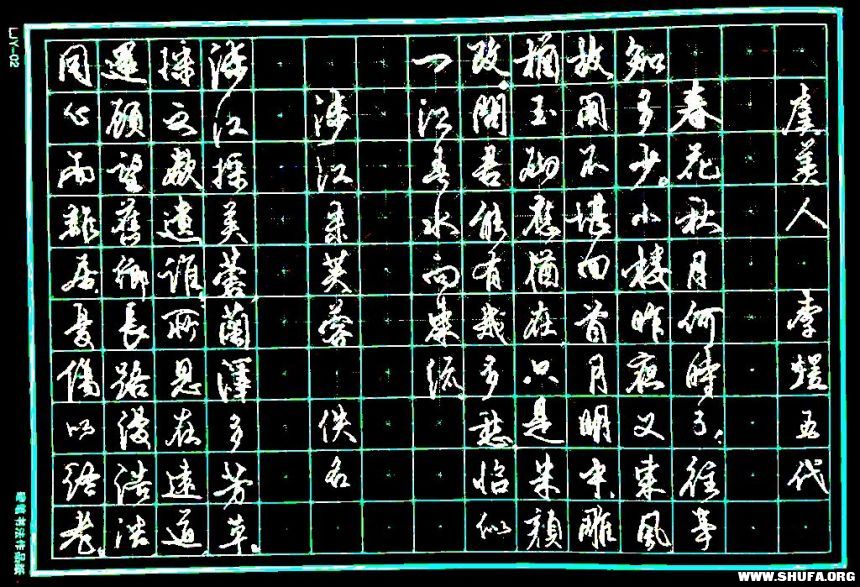 虞美人 李煜 五代
春花秋月何时了,往事
知多少。小楼昨夜又东风
故国不堪回首月明中雕
栏玉砌应犹在只是朱颜
改。问君能有几多愁恰似
一江春水向东流。
涉江采芙蓉 佚名
涉江採芙蓉,蘭澤多芳草。
採之欲遗谁,所思在遠道。
還顧望舊鄉長路漫浩浩
同心而離居憂傷以终老。
LJY-02
硬笔书法作品纸
WWW.SHUFA.ORG